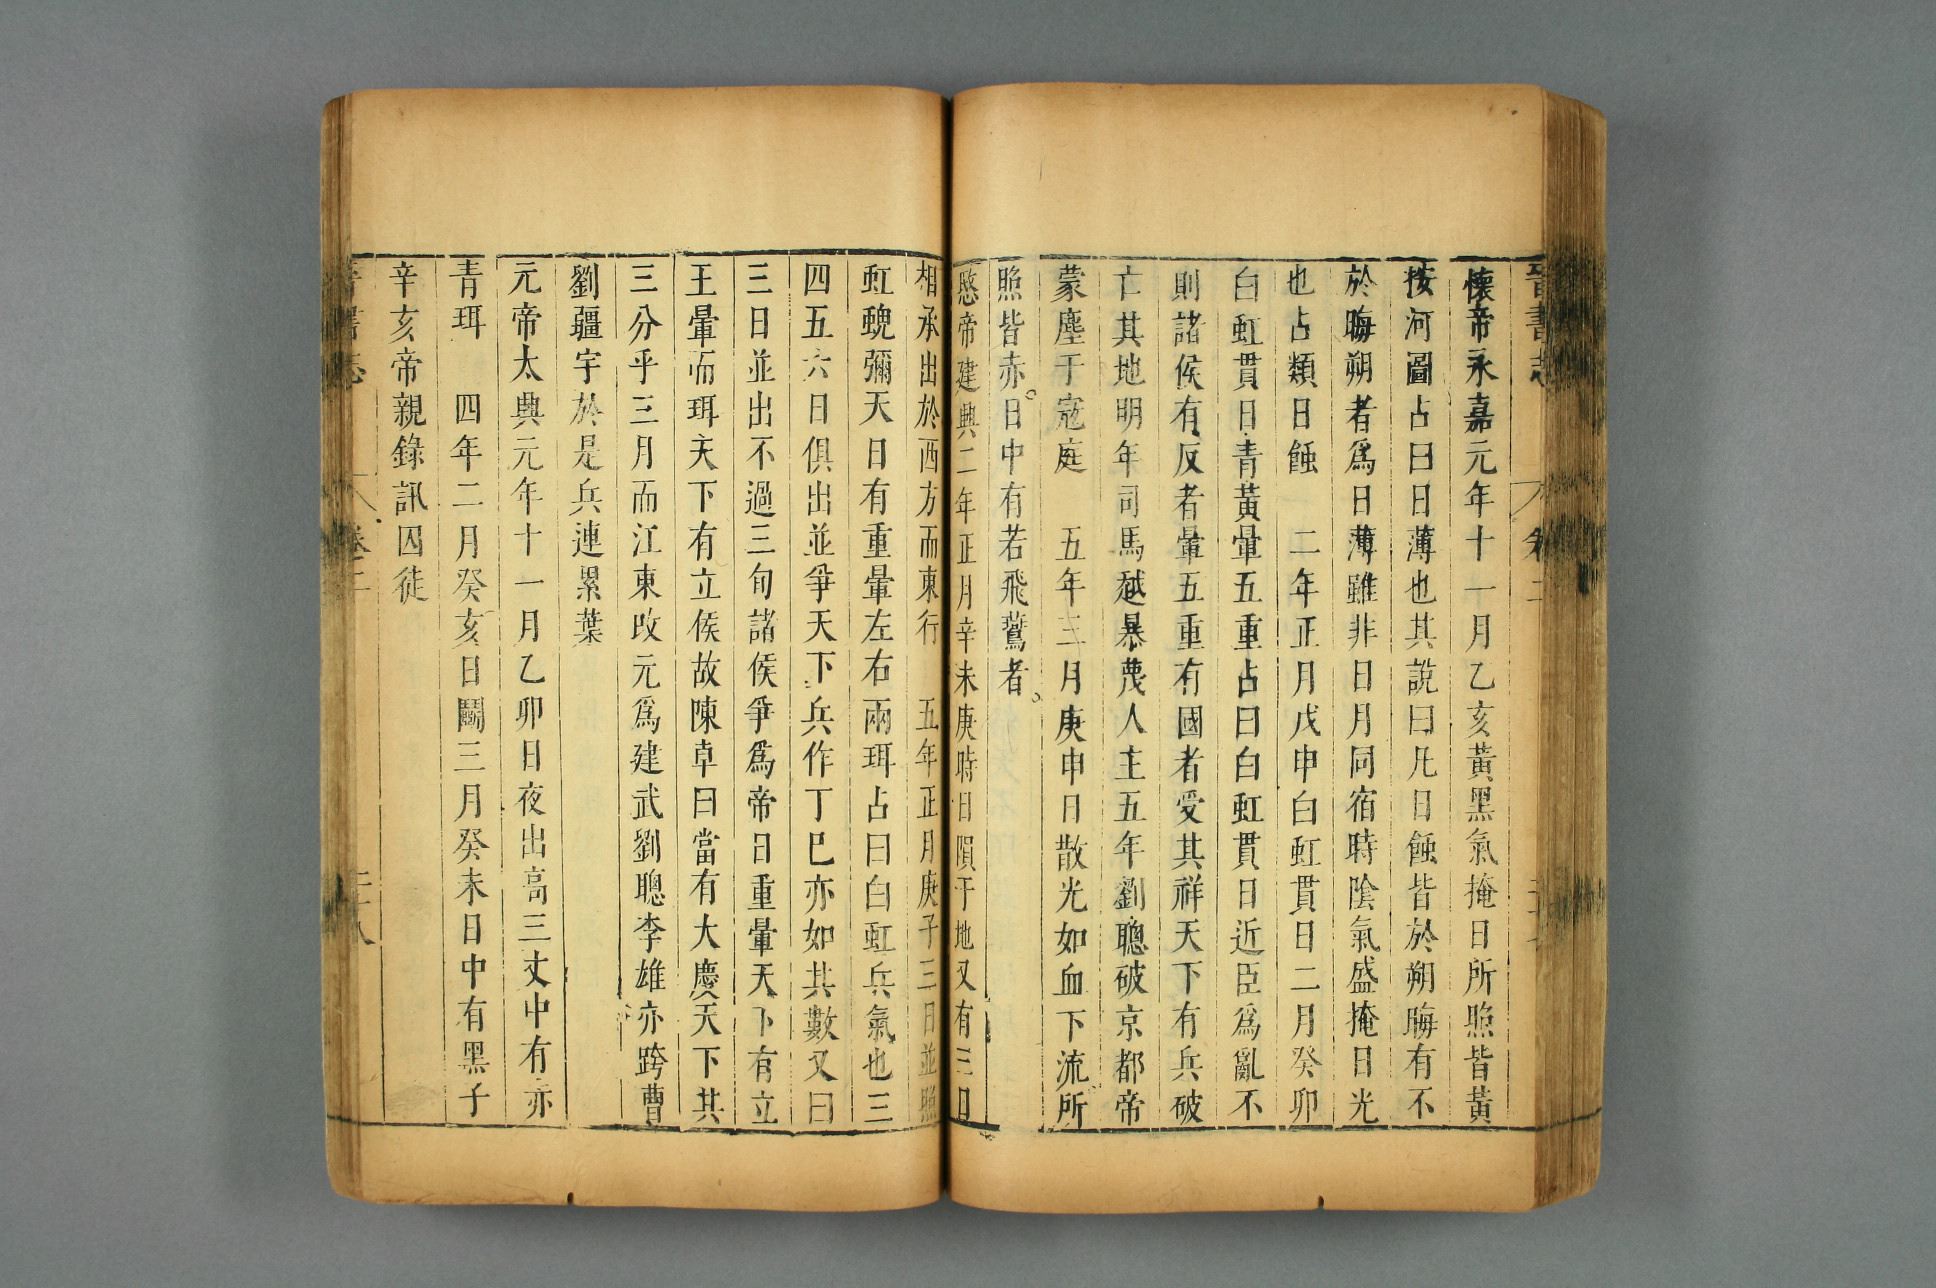 晉書志
卷二
懷帝永嘉元年十一月乙亥黃黑氣掩日所照皆黃
按河圖占曰日薄也其說曰凡日蝕皆於朔晦有不
於晦朔者爲日薄雖非日月同宿時陰氣盛掩日光
也占類日蝕 二年正月戊申白虹貫日二月癸卯
白虹貫日青黃暈五重占曰白虹貫日近臣爲亂不
則諸侯有反者暈五重有國者受其祥天下有兵破
亡其地明年司馬越暴蔑人主五年劉聰破京都帝
蒙塵于寇庭 五年三月庚申日散光如血下流所
照皆赤日中有若飛鷰者
愍帝建興二年正月辛未庚時日隕于地又有三日
相承出於西方而東行 五年正月庚子三日並照
虹蜺彌天日有重暈左右兩珥占曰白虹兵氣也三
四五六日俱出並爭天下兵作丁巳亦如其數又曰
三日並出不過三旬諸侯爭爲帝日重暈天下有立
王暈而珥天下有立侯故陳卓曰當有大慶天下其
三分乎三月而江東改元爲建武劉聰李雄亦跨曹
劉疆宇於是兵連累葉
元帝太興元年十一月乙卯日夜出高三丈中有赤
青珥 四年二月癸亥日鬬三月癸未日中有黑子
辛亥帝親錄訊囚徒
晉書志
卷二
二十八